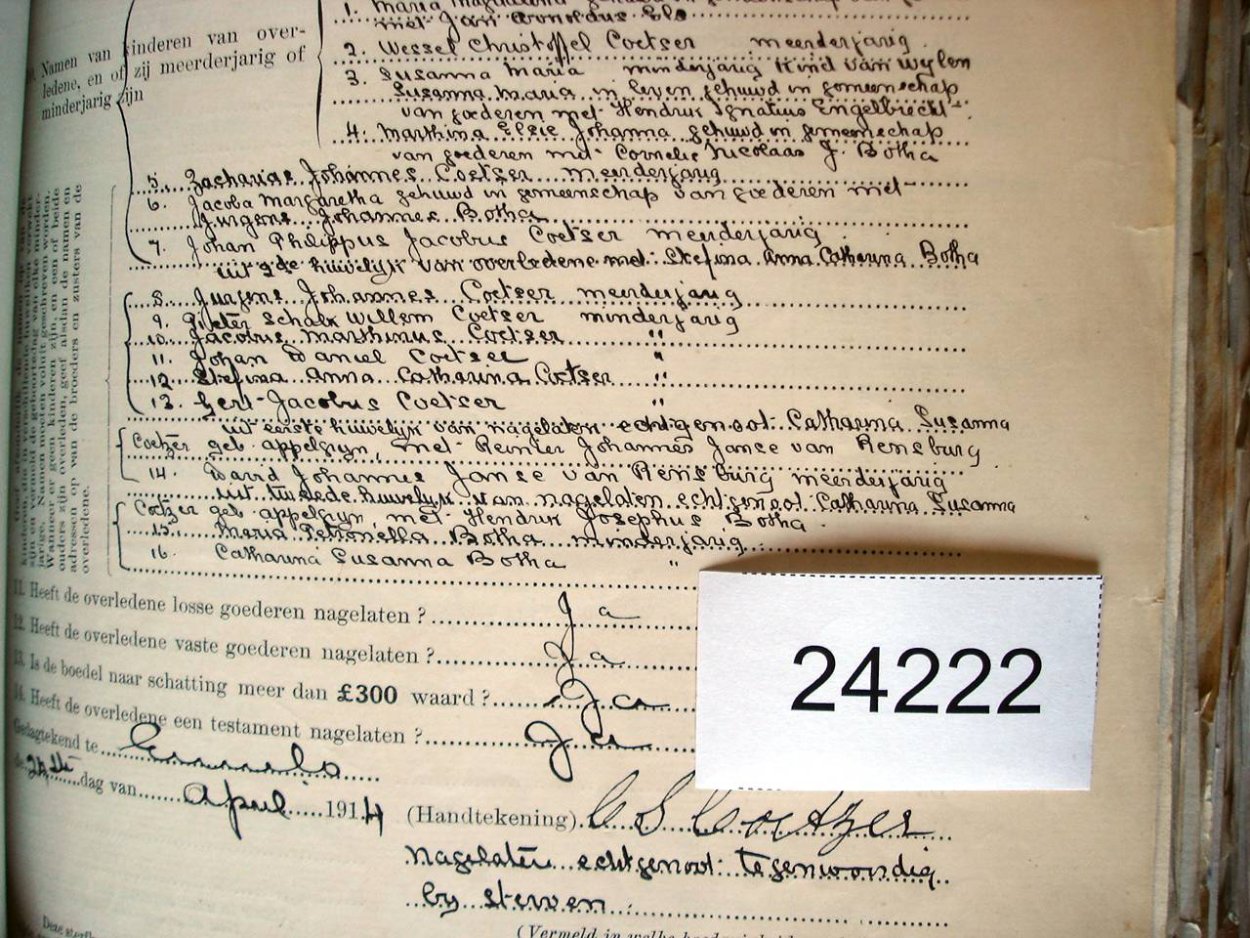 1. Maria Magdalena gehuwd in gemeenschap van
met Jan Arnoldus Els
2. Wessel Christoffel Coetser meerderjarig
3. Susanna Maria minderjarig Kind van wylen
Susanna Maria in leven gehuwd in gemeenschap
van goederen met Hendrik Ignatius Engelbrecht
4. Marthina Elsie Johanna gehuwd in gemeenschap
van goederen met Cornelis Nicolaas J. Botha
10. Namen van kinderen van over-
ledene, en of zij meerderjarig of
minderjarig zijn
5. Zacharias Johannes Coetser meerderjarig
6. Jacoba Margaretha gehuwd in gemeenschap van goederen met
Jurgens Johannes Botha
7. Johan Philippus Jacobus Coetser meerderjarig
uit 2de huwelijk van overledene met Stefina Anna Catharina Botha
8. Jurgens Johannes Coetser meerderjarig
9. Pieter Schalk Willem Coetser minderjarig
10. Jacobus Marthinus Coetser "
11. Johan Daniel Coetser "
12. Stefina Anna Catharina Coetser "
13. Gert Jacobus Coetser "
uit eerste huwelijk van nagelaten echtgenoot Catharina Susanna
Coetzer geb. appelgryn, met Reinier Johannes Janse van Rensburg
14. David Johannes Janse van Rensburg meerderjarig
uit tweede huwelyk van nagelaten echtgenoot Catharina Susanna
Coetzer geb. appelgryn, met Hendrik Josephus Botha
15. Maria Petronella Botha minderjarig
16. Catharina Susanna Botha "
Wanneer er geen kinderen zijn, en een of beide
ouders zijn overleden, geef alsdan de namen en
adressen op van de broeders en zusters van de
overledene.
11. Heeft de overledene losse goederen nagelaten ? Ja
12. Heeft de overledene vaste goederen nagelaten ? Ja
13. Is de boedel naar schatting meer dan £300 waard ? Ja
14. Heeft de overledene een testament nagelaten ? Ja
24222
Gedagtekend te Ermelo
de dag van April 1914
(Handtekening) C S Coetzer
Nagelaten echtgenoot tegenwoordig
by sterven
(Vermeld in welke